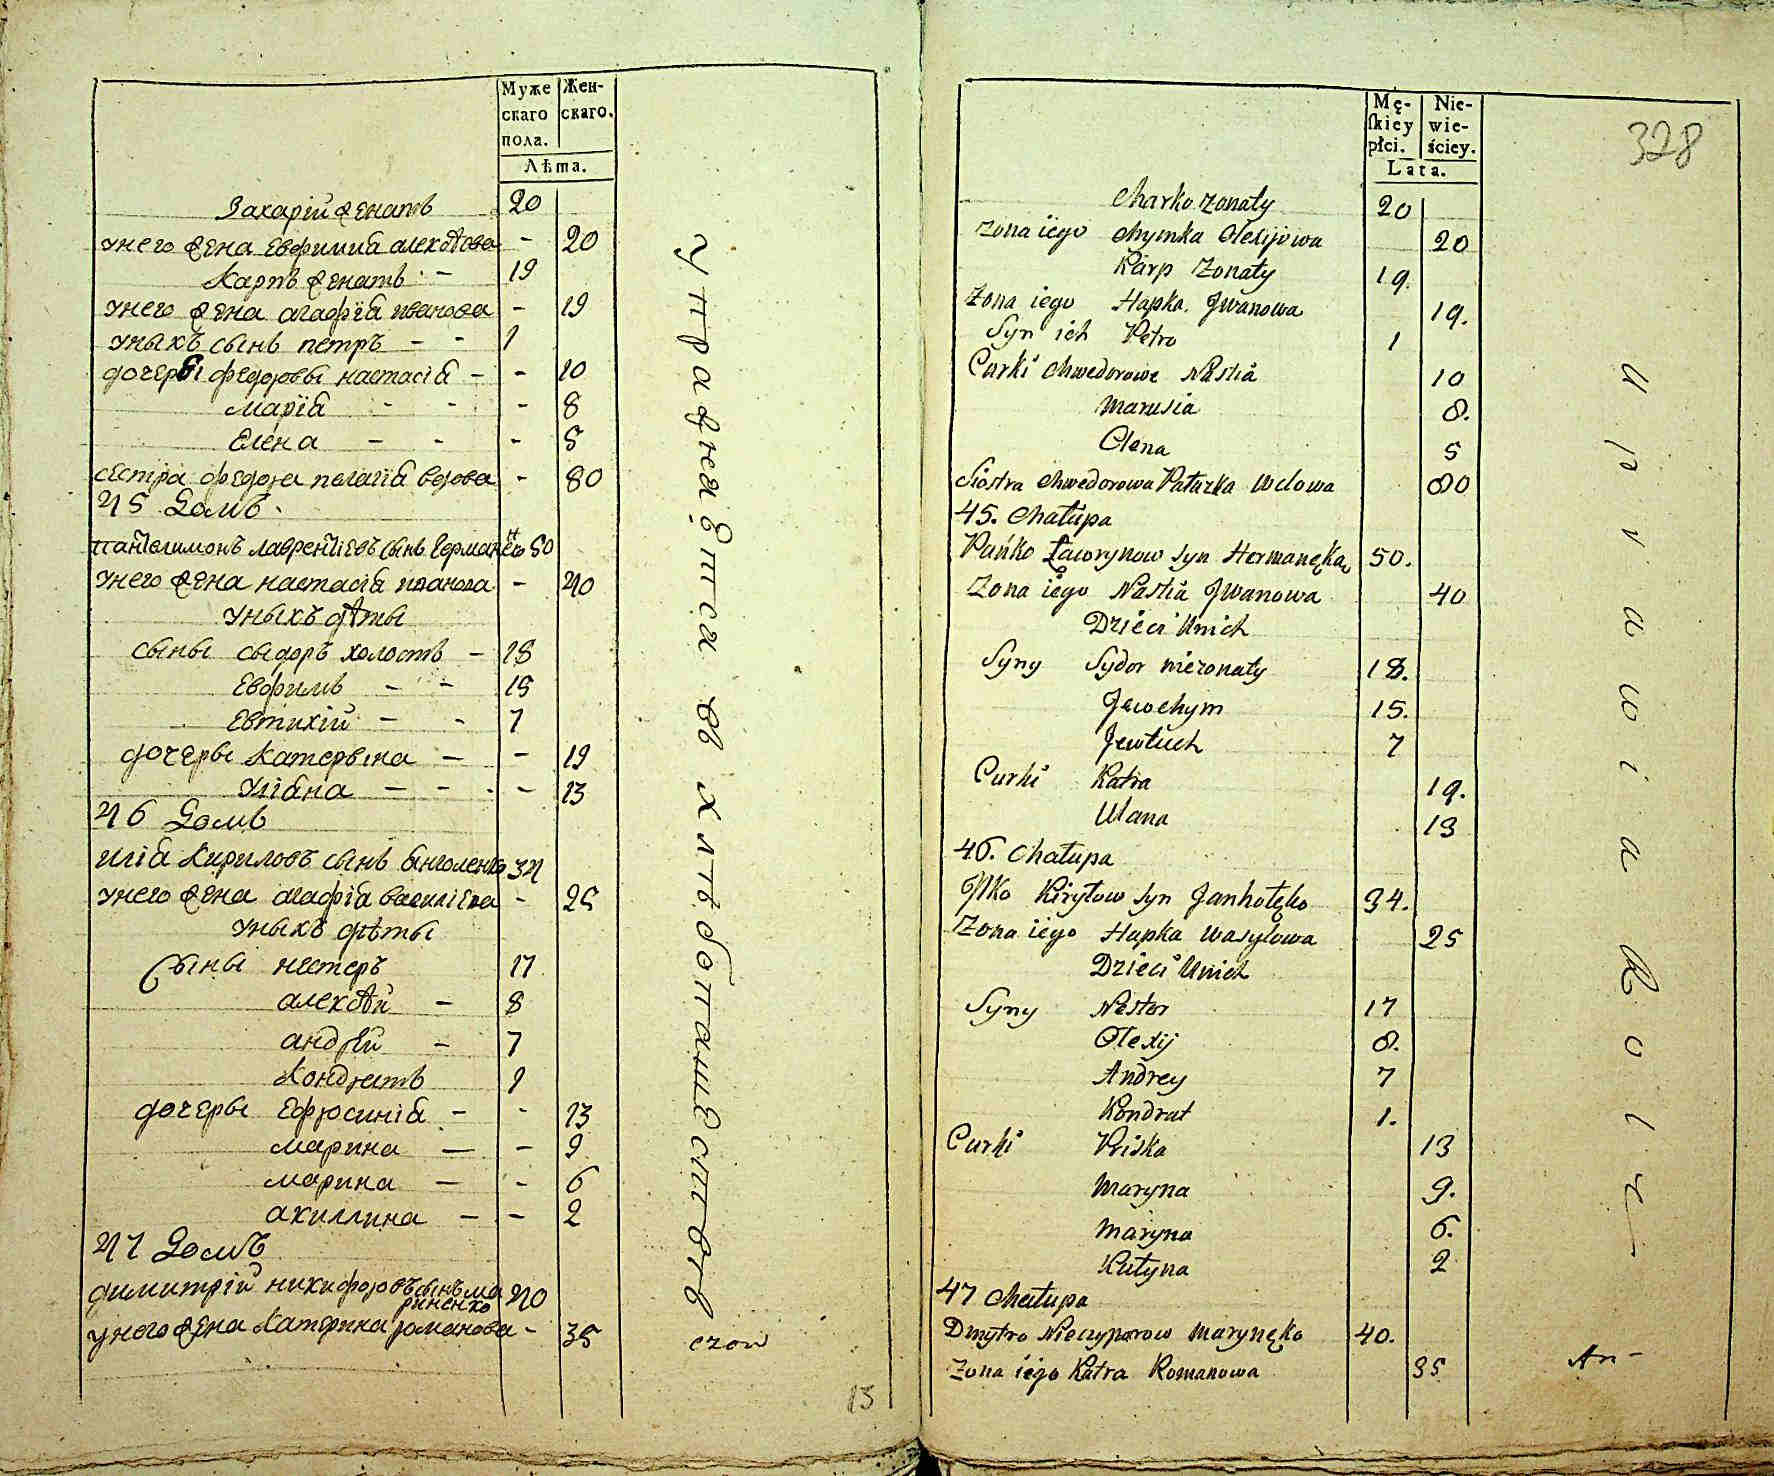 Муже
скаго
пола.
Жен-
скаго.
Лѣта.
Захарій женатъ 20
унего жена евфиміа алексѣева - 20
Карпъ женатъ - 19
унего жена агафіа иванова - 19
уныхъ сынъ петръ - - 1
дочеры федоровы настасіа - - 10
маріа - - - 8
Елена - - - 5
сестра федора пелагіа вдова - 80
45 Домъ
пантелимонъ лаврентіевъ сынъ германенко 50
унего жена настасіа иванова - 40
уныхъ дѣты
сыны сыдоръ холостъ - 18
Евфимъ - - 15
Евтихій - - 7
дочеры Катерына - - 19
Уліана - - - - 13
46 Домъ
иліа Кириловъ сынъ янголенко 34
унего жена агафіа василіева - 25
уныхъ дѣты
Сыны нестеръ 17
алексѣй - 8
андрѣй - 7
Кондратъ 1
дочеры Ефросиніа - - 13
марина - - 9
марина - - 6
акиллина - - 2
47 Домъ
димитрій никифоровъ сынъ ма
риненко 40
унего жена Катерина романова - 35
управжнаѣтса въ хлѣбопашествѣ
czon
13
Mę-
skiey
płci.
Nie-
wie-
ściey.
Lata.
328
Charko zonaty 20
Zona iego Chymka Olexijowa 20
Karp Zonaty 19.
Zona iego Hapka Jwanowa 19.
Syn ich Petro 1
Curki Chwedorowe Nastia 10
Marusia 8.
Olena 5
Siostra Chwedorowa Pałazka Wdowa 80
45. Chałupa
Pańko Ławrynow syn Hermanęko 50.
Zona iego Nastia Jwanowa 40
Dzieci Unich
Syny Sydor niezonaty 18.
Jewchym 15.
Jewtuch 7
Curki Katra 19.
Ulana 13
46. Chałupa
Jlko Kiryłow syn Janhołęko 34.
Zona iego Hapka Wasylowa 25
Dzieci Unich
Syny Nestor 17
Olexij 8.
Andrey 7
Kondrat 1.
Curki Priska 13
Maryna 9.
Maryna 6.
Kulyna 2
47 Chałupa
Dmytro Nieczyporow Marynęko 40.
Zona iego Katra Romanowa 35
uprawia Rolę
An-